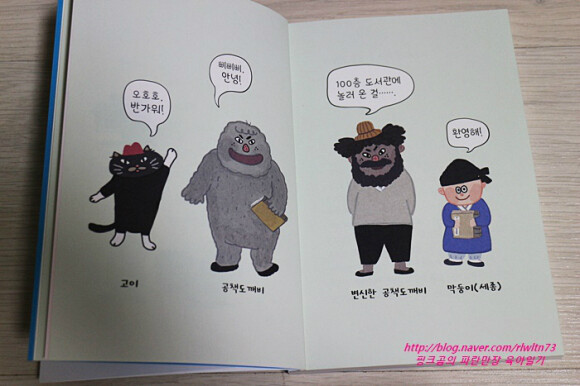 오호호,
반가워!
삐삐삐,
안녕!
100층 도서관에
놀러 온 걸……,
환영해!
고이
공책도깨비
변신한 공책도깨비
막둥이(세종)
http://blog.naver.com/rlwltn73
핑크곰의 파란만장 육아일기